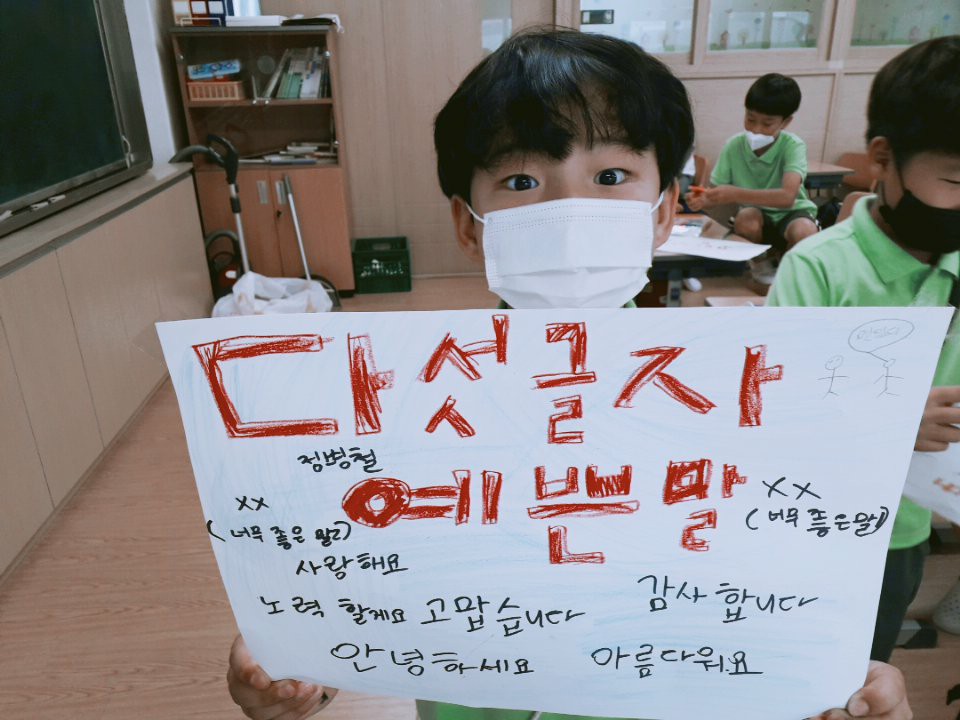 다섯글자
정병철
예쁜말
xx
(너무 좋은 말)
xx
(너무 좋은말)
사랑해요
노력 할게요 고맙습니다 감사합니다
안녕하세요 아름다워요